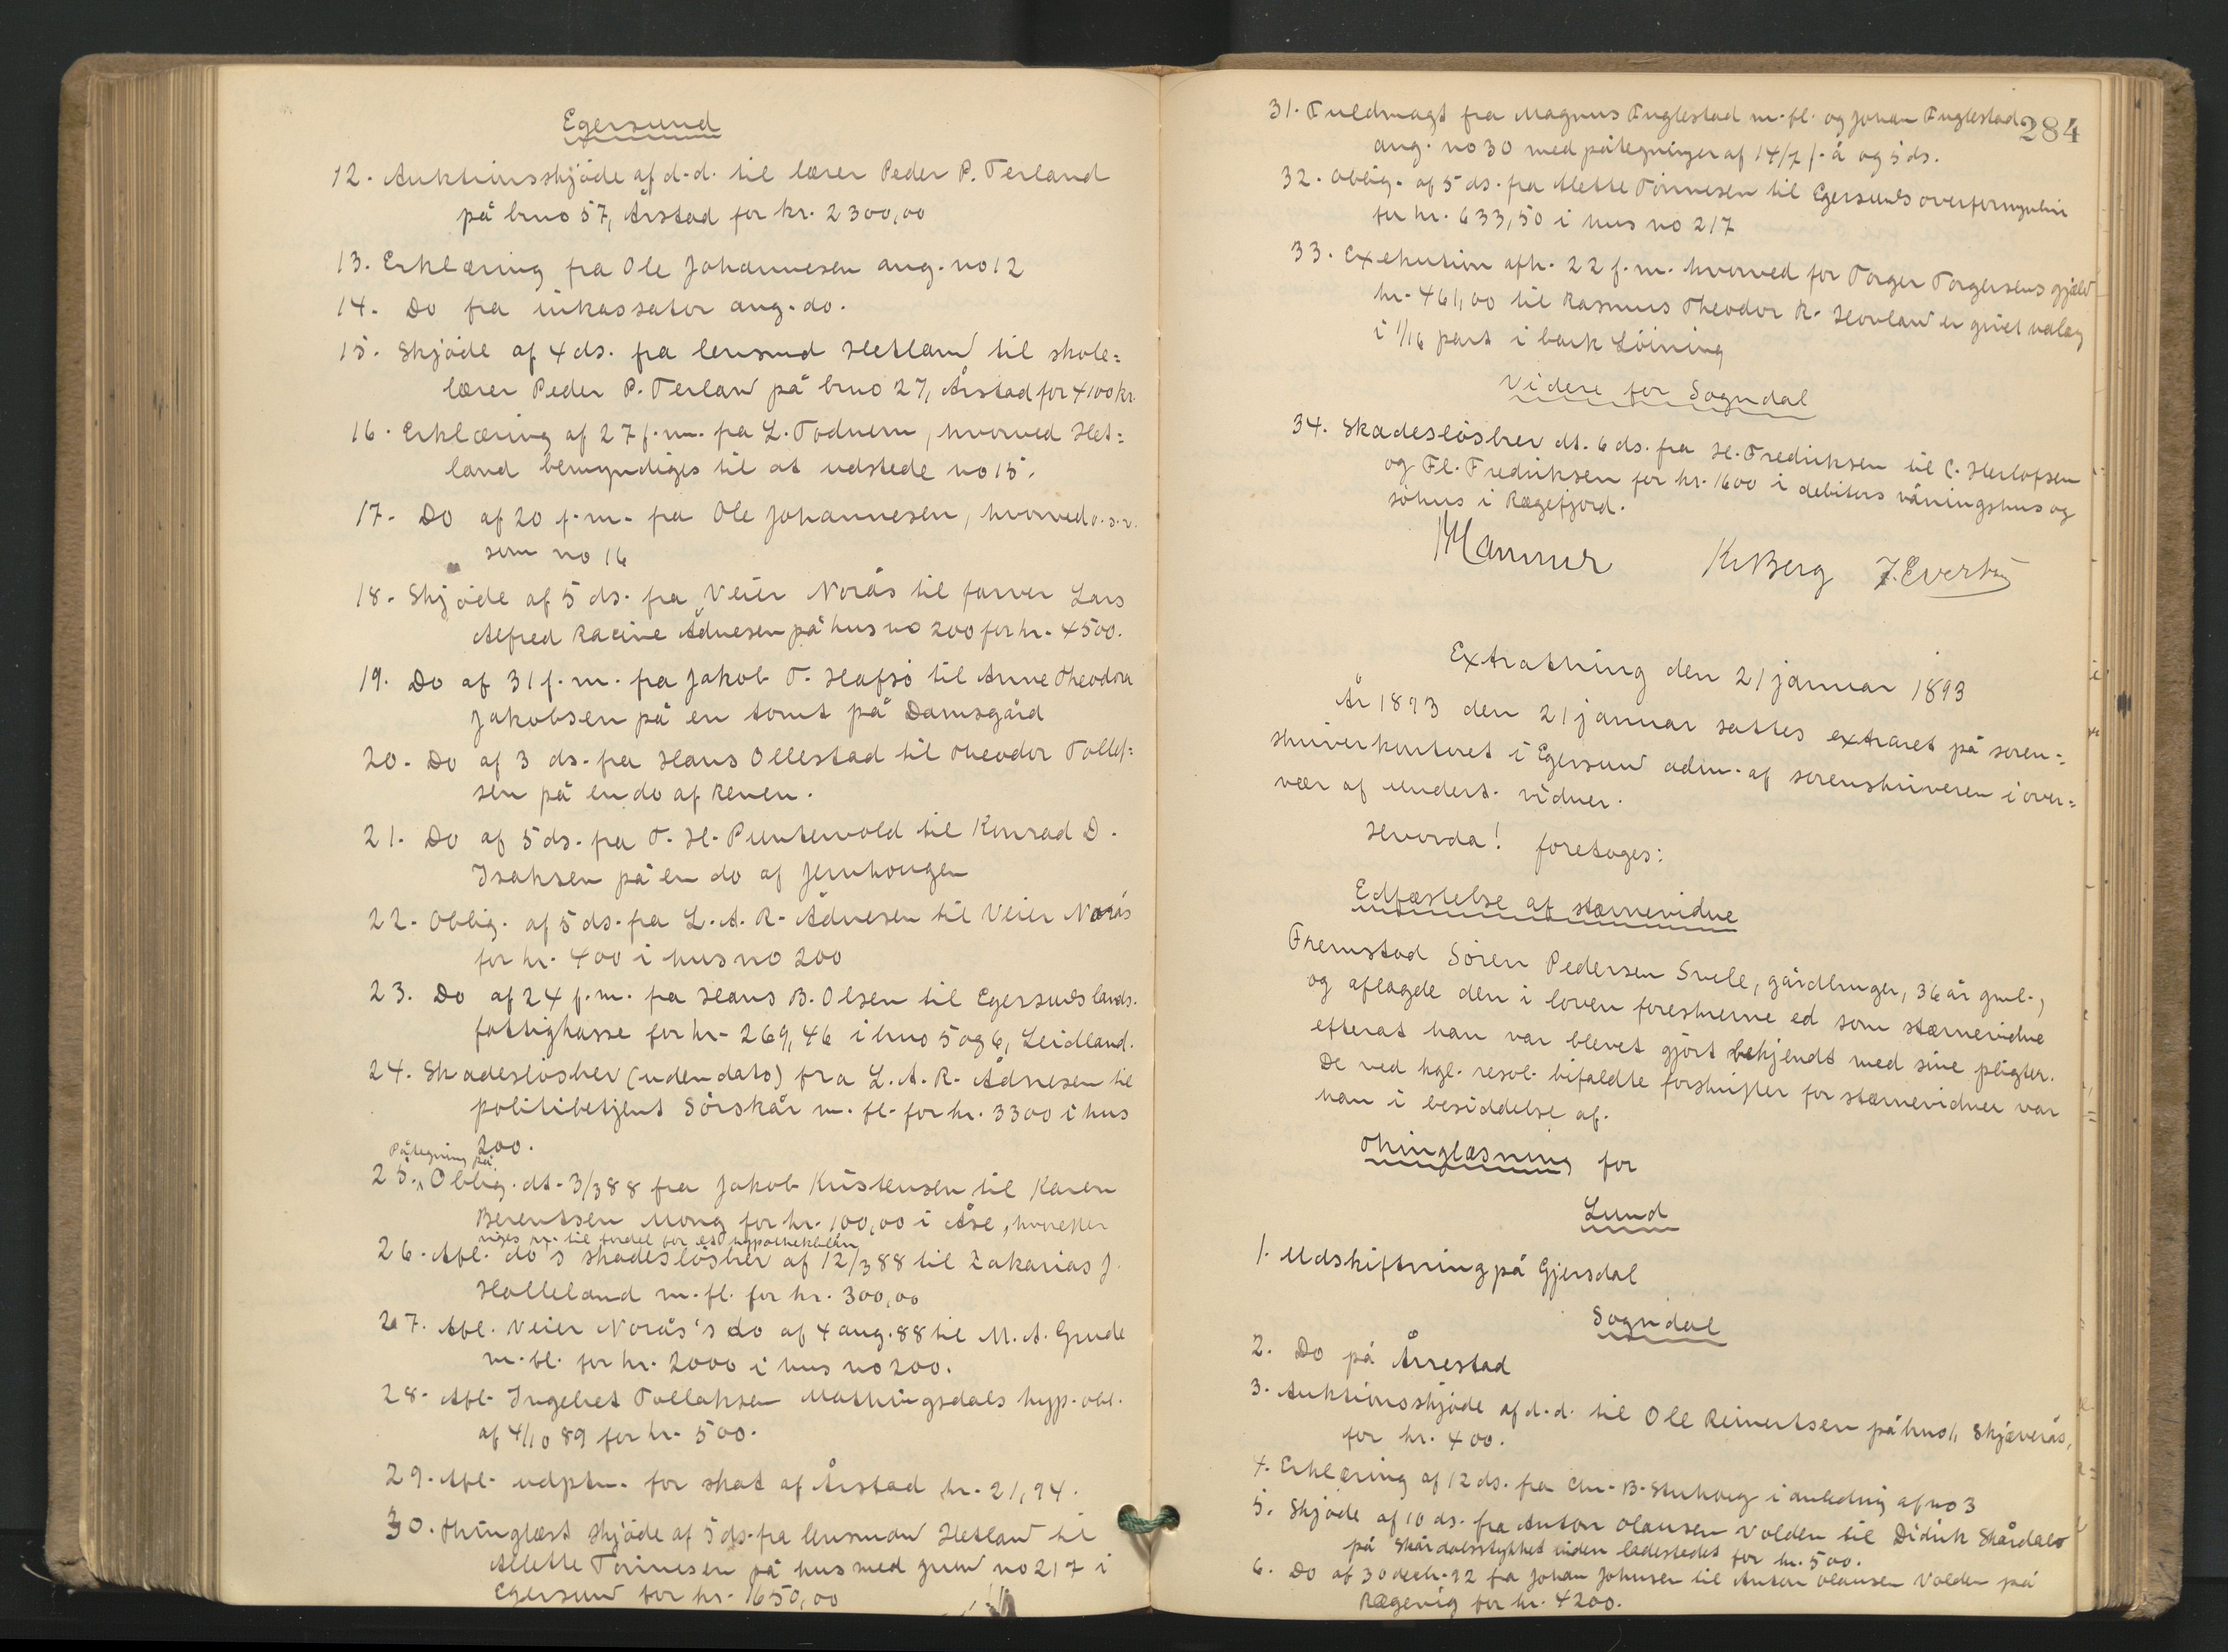 Egersund
12. Auktionsskjøde af d.d. til lærer Peder P. Terland
på bruo 57, Årstad for kr. 2300,00
13. Erklæring fra Ole Johannesen ang. no 12
14. Do fra inkassator ang. do.
15. Skjøde af 4 ds. fra lensmd Hetland til skole=
lærer Peder P. Terland på bruo 27, Årstad for 4100 kr.
16. Erklæring af 27 f.m. fra L. Todnem, hvorved Het=
land bemyndiges til at udstede no 15.
17. Do af 20 f.m. fra Ole Johannesen, hvorved o.s.v.
som no 16
18. Skjøde af 5 ds. fra Veier Norås til farver Lars
Alfred Racine Ådnesen på hus no 200 for kr. 4500.
19. Do af 31 f.m. fra Jakob T. Hafsø til Anne Theodora
Jakobsen på en tomt på Damsgård
20. Do af 3 ds. fra Hans Ollestad til Theodor Tollef=
sen på en do af Renen.
21. Do af 5 ds. fra T. H. Puntervold til Konrad D.
Isaksen på en do af Jernhougen
22. Oblig. af 5 ds. fra L. A. R. Ådnesen til Veier Norås
for kr. 400 i hus no 200
23. Do af 24 f.m. fra Hans B. Olsen til Egersunds lands.
fattigkasse for kr. 269,46 i bruo 5 og 6, Leidland.
24. Skadesløsbrev (uden dato) fra L. A. R. Ådnesen til
politibetjent Sørskår m. fl. for kr. 3300 i hus
200.
Påtegning på
25. Oblig. dt. 3/3 88 fra Jakob Kristensen til Karen
Berentsen Mong for kr. 100,00 i Åse, hvorefter
viges pr. til fordel for et hypotheklån
26. Afl. do's skadesløsbrev af 12/3 88 til Zakarias J.
Holleland m. fl. for kr. 300,00
27. Afl. Veier Norås's do af 4 aug. 88 til M. A. Grude
m. fl. for kr. 2000 i hus no 200.
28. Afl. Ingebret Tollaksen Mathingsdals hyp. obl.
af 4/10 89 for kr. 500.
29. Afl. udptn. for skat af Årstad kr. 21,94.
30. Thinglæst skjøde af 5 ds. fra lensmand Hetland til
Alette Tønnesen på hus med grund no 217 i
Egersund for kr. 1650,00
284
31. Fuldmagt fra Magnus Fuglestad m. fl. og Johan Fuglestad
ang. no 30 med påtegninger af 14/7 f. å og 5 ds.
32. Oblig. af 5 ds. fra Alette Tønnesen til Egersunds overformynderi
for kr. 633,50 i hus no 217
33. Exekution afh. 22 f.m. hvorved for Torger Torgersens gjæld
kr. 461,00 til Rasmus Theodor R. Hovland er gjort udlæg
i 1/16 part i bark Løining
Videre for Sogndal
34. Skadesløsbrev dt. 6 ds. fra H. Fredriksen til C. Herlofsen
og Fl. Fredriksen for kr. 1600 i debitors våningshus og
søhus i Rægefjord.
Kr Berg J. Everts
Extrathing den 21 januar 1893
År 1893 den 21 januar sattes extraret på soren=
skriverkontoret i Egersund adm. af sorenskriveren i over=
vær af undert. vidner.
Hvorda! foretoges:
Edfæstelse af stævnevidne
Fremstod Søren Pedersen Svele, gårdbruger, 36 år gml.,
og aflagde den i loven foreskrevne ed som stævnevidne
efterat han var blevet gjort bekjendt med sine pligter.
De ved kgl. resol. bifaldte forskrifter for stævnevidner var
han i besiddelse af.
Thinglæsning for
Lund
1. Udskiftning på Gjersdal
Sogndal
2. Do på Årrestad
3. Auktionsskjøde af d.d. til Ole Reinertsen på bruo 1, Skjæverås,
for kr. 400.
4. Erklæring af 12 ds. fra Chr. B. i anledning af no 3
5. Skjøde af 10 ds. fra Anton Olausen Volden til Didrik Skårdalo
på Skårdalsstykket uden ladestedet for kr. 500.
6. Do af 30 decbr. 92 fra Johan Johnsen til Anton Olausen Volden på
Rægevig for kr. 4200.